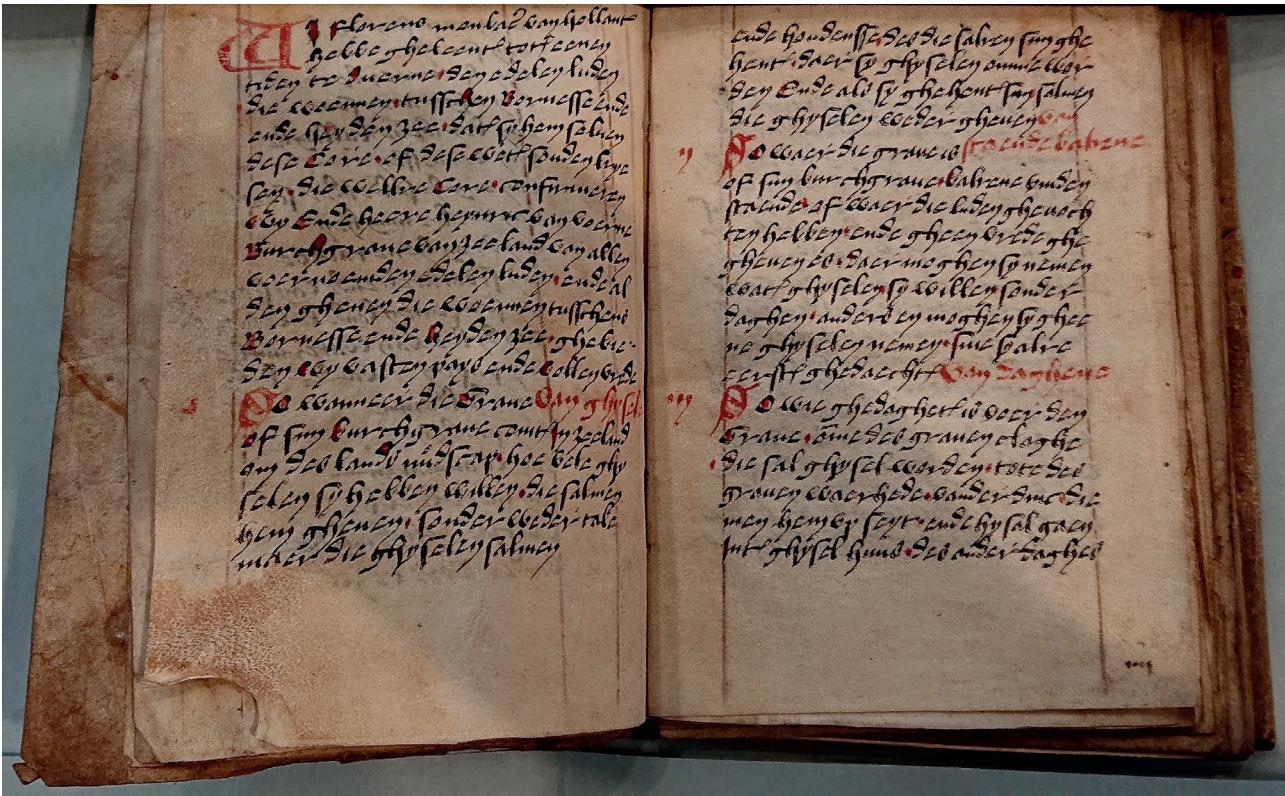 Wi Florens momber van hollant
hebbe gheleent tot eenen
tiden te Auerne den edelen luden
die woennen tusschen Bornesse ende
ende heyden zee dat sy hem seluen
dese Core of dese wet souden kye
sen die wellre Core confirmeren
Wy Ende heere heynric van voerne
Burchgraue van zeeland van allen
voernoemden edelen luden ende al
den ghenen die woennen tusschens
Bornesse ende heyden zee ghebie
den wy vasten pays ende vollen vrede
i
So wanneer die Graue Van ghysel
of sijn burchgraue comt in zeeland
om des lands nidscap hoe vele ghy
selen sy hebben willen die salmen
hem gheuen sonder weder tale
maer die ghyselen salmen
ende houdense des die saken sijn ghe
hent daer sy ghyselen omme wor
den Ende als sy ghehent sijn salmen
die ghyselen weder gheuen van
ij
So waer die graue is staende bakene
of sijn burchgraue bakene vinden
staende of waer die luden gheuoch
ten hebben ende gheen vrede ghe
gheuen es daer moghen sy nemen
wat ghyselen sy willen sonder
daghen anders en moghen sy ghee
ne ghyselen nemen sine sy alre
eerst ghedaecht Van daghene
iij
So wie ghedaghet is voer den
Graue omme des grauen claghe
die sal ghysel worden tote des
grauen waerhede vander dinc die
men hem vp seyt ende hy sal gaen
Int ghysel huus des ander daghes
iiij